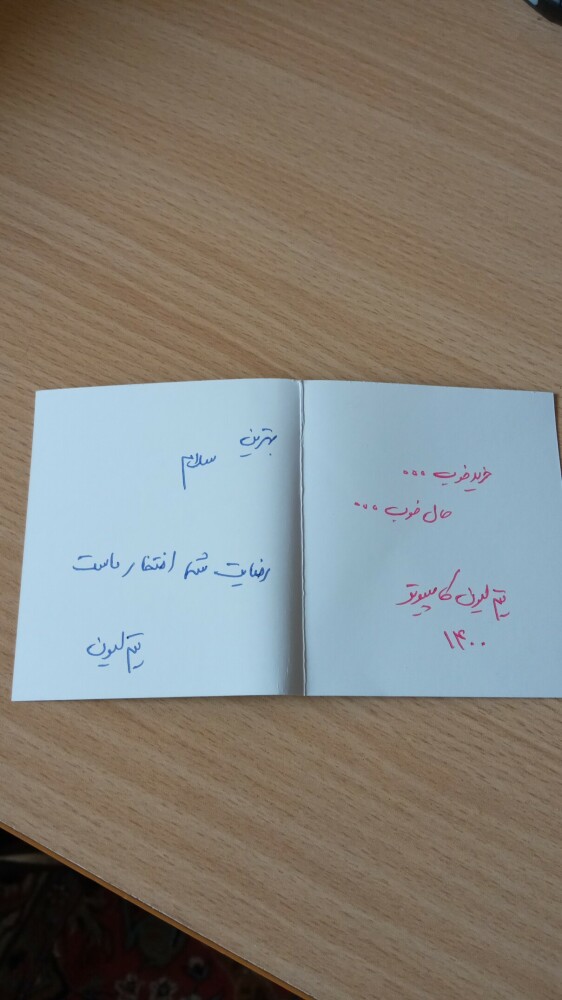 خرید خوب ...
حال خوب ...
تیم لیون کامپیوتر
۱۴۰۰
بهترین
سلام
رضایت شما افتخار ماست
تیم لیون